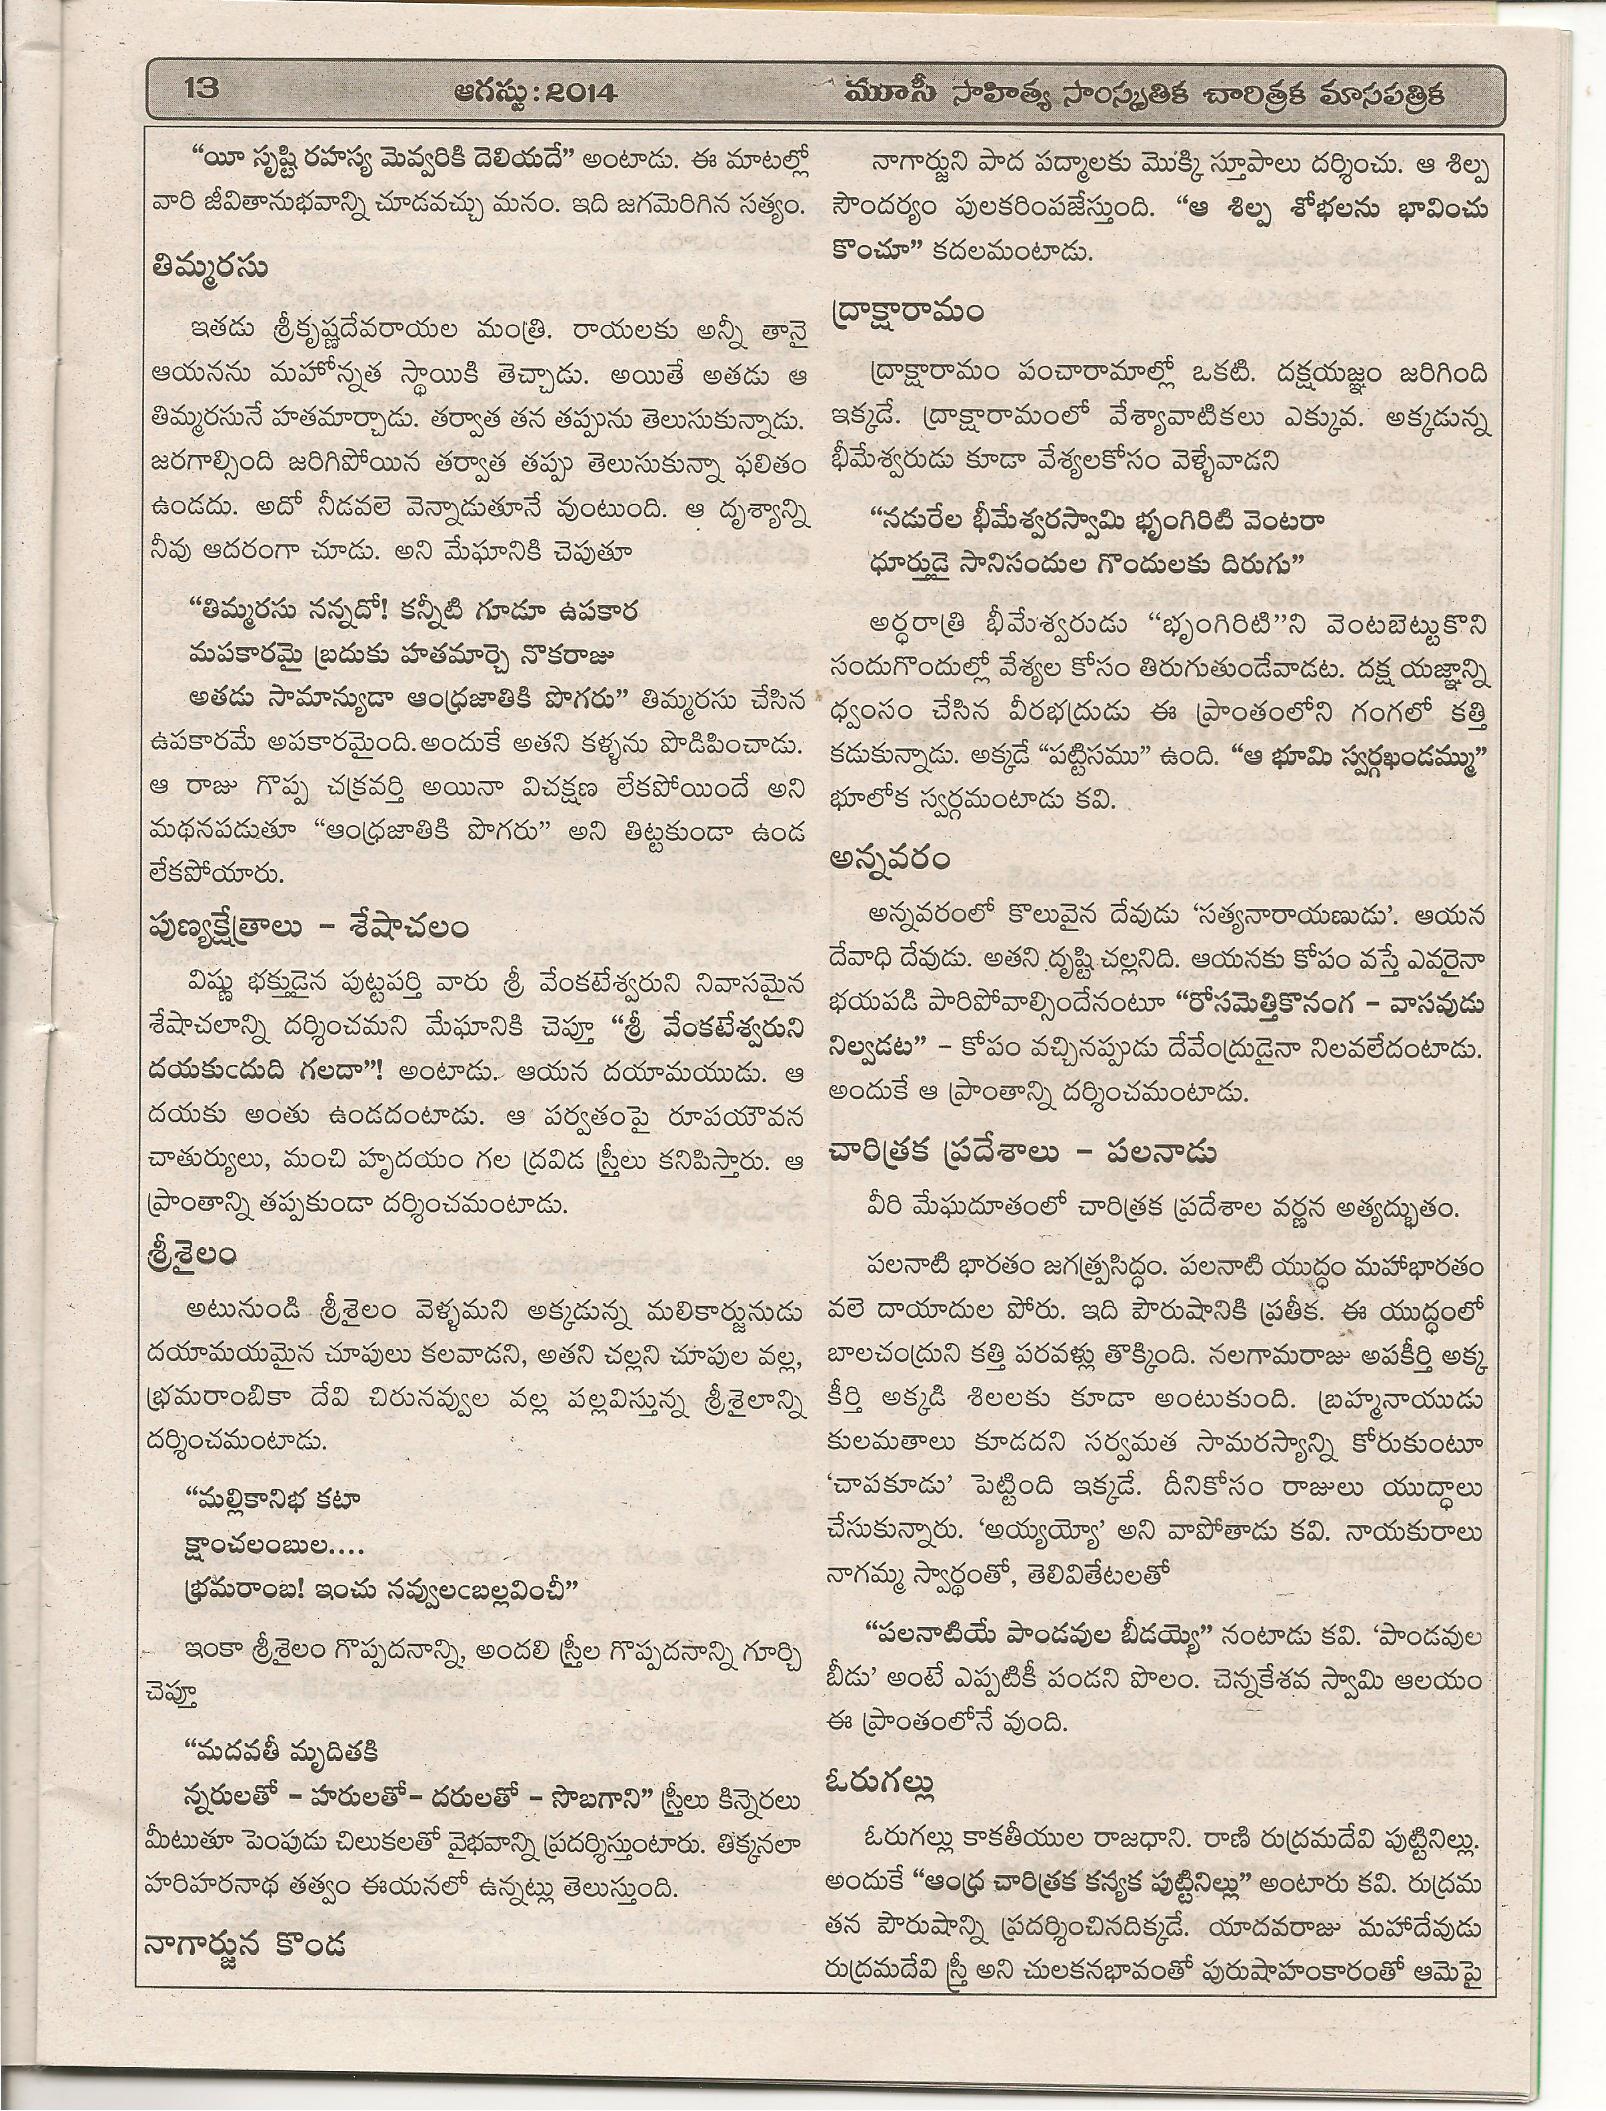 13 ఆగస్టు:2014 మూసీ సాహిత్య సాంస్కృతిక చారిత్రక మాసపత్రిక
“యీ సృష్టి రహస్య మెవ్వరికి దెలియదే” అంటాడు. ఈ మాటల్లో
వారి జీవితానుభవాన్ని చూడవచ్చు మనం. ఇది జగమెరిగిన సత్యం.
తిమ్మరసు
ఇతడు శ్రీకృష్ణదేవరాయల మంత్రి. రాయలకు అన్నీ తానై
ఆయనను మహోన్నత స్థాయికి తెచ్చాడు. అయితే అతడు ఆ
తిమ్మరసునే హతమార్చాడు. తర్వాత తన తప్పును తెలుసుకున్నాడు.
జరగాల్సింది జరిగిపోయిన తర్వాత తప్పు తెలుసుకున్నా ఫలితం
ఉండదు. అదో నీడవలె వెన్నాడుతూనే వుంటుంది. ఆ దృశ్యాన్ని
నీవు ఆదరంగా చూడు. అని మేఘానికి చెపుతూ
“తిమ్మరసు నన్నదో! కన్నీటి గూడూ ఉపకార
మపకారమై బ్రదుకు హతమార్చె నొకరాజు
అతడు సామాన్యుడా ఆంధ్రజాతికి పొగరు” తిమ్మరసు చేసిన
ఉపకారమే అపకారమైంది.అందుకే అతని కళ్ళను పొడిపించాడు.
ఆ రాజు గొప్ప చక్రవర్తి అయినా విచక్షణ లేకపోయిందే అని
మథనపడుతూ “ఆంధ్రజాతికి పొగరు” అని తిట్టకుండా ఉండ
లేకపోయారు.
పుణ్యక్షేత్రాలు – శేషాచలం
విష్ణు భక్తుడైన పుట్టపర్తి వారు శ్రీ వేంకటేశ్వరుని నివాసమైన
శేషాచలాన్ని దర్శించమని మేఘానికి చెప్తూ “శ్రీ వేంకటేశ్వరుని
దయకుఁదుది గలదా”! అంటాడు. ఆయన దయామయుడు. ఆ
దయకు అంతు ఉండదంటాడు. ఆ పర్వతంపై రూపయౌవన
చాతుర్యులు, మంచి హృదయం గల ద్రవిడ స్త్రీలు కనిపిస్తారు. ఆ
ప్రాంతాన్ని తప్పకుండా దర్శించమంటాడు.
శ్రీశైలం
అటునుండి శ్రీశైలం వెళ్ళమని అక్కడున్న మలికార్జునుడు
దయామయమైన చూపులు కలవాడని, అతని చల్లని చూపుల వల్ల,
భ్రమరాంబికా దేవి చిరునవ్వుల వల్ల పల్లవిస్తున్న శ్రీశైలాన్ని
దర్శించమంటాడు.
“మల్లికానిభ కటా
క్షాంచలంబుల....
భ్రమరాంబ! ఇంచు నవ్వులఁబల్లవించీ”
ఇంకా శ్రీశైలం గొప్పదనాన్ని, అందలి స్త్రీల గొప్పదనాన్ని గూర్చి
చెప్తూ
“మదవతీ మృదితకి
న్నరులతో – హరులతో– దరులతో – సొబగాని” స్త్రీలు కిన్నెరలు
మీటుతూ పెంపుడు చిలుకలతో వైభవాన్ని ప్రదర్శిస్తుంటారు. తిక్కనలా
హరిహరనాథ తత్వం ఈయనలో ఉన్నట్లు తెలుస్తుంది.
నాగార్జున కొండ
నాగార్జుని పాద పద్మాలకు మొక్కి స్తూపాలు దర్శించు. ఆ శిల్ప
సౌందర్యం పులకరింపజేస్తుంది. “ఆ శిల్ప శోభలను భావించు
కొంచూ” కదలమంటాడు.
ద్రాక్షారామం
ద్రాక్షారామం పంచారామాల్లో ఒకటి. దక్షయజ్ఞం జరిగింది
ఇక్కడే. ద్రాక్షారామంలో వేశ్యావాటికలు ఎక్కువ. అక్కడున్న
భీమేశ్వరుడు కూడా వేశ్యలకోసం వెళ్ళేవాడని
“నడురేల భీమేశ్వరస్వామి భృంగిరిటి వెంటరా
ధూర్తుడై సానిసందుల గొందులకు దిరుగు”
అర్ధరాత్రి భీమేశ్వరుడు “భృంగిరిటి”ని వెంటబెట్టుకొని
సందుగొందుల్లో వేశ్యల కోసం తిరుగుతుండేవాడట. దక్ష యజ్ఞాన్ని
ధ్వంసం చేసిన వీరభద్రుడు ఈ ప్రాంతంలోని గంగలో కత్తి
కడుకున్నాడు. అక్కడే “పట్టిసము” ఉంది. “ఆ భూమి స్వర్గఖండమ్ము”
భూలోక స్వర్గమంటాడు కవి.
అన్నవరం
అన్నవరంలో కొలువైన దేవుడు ‘సత్యనారాయణుడు’. ఆయన
దేవాధి దేవుడు. అతని దృష్టి చల్లనిది. ఆయనకు కోపం వస్తే ఎవరైనా
భయపడి పారిపోవాల్సిందేనంటూ “రోసమెత్తికొనంగ – వాసవుడు
నిల్వడట” – కోపం వచ్చినప్పుడు దేవేంద్రుడైనా నిలవలేదంటాడు.
అందుకే ఆ ప్రాంతాన్ని దర్శించమంటాడు.
చారిత్రక ప్రదేశాలు – పలనాడు
వీరి మేఘదూతంలో చారిత్రక ప్రదేశాల వర్ణన అత్యద్భుతం.
పలనాటి భారతం జగత్ప్రసిద్ధం. పలనాటి యుద్ధం మహాభారతం
వలె దాయాదుల పోరు. ఇది పౌరుషానికి ప్రతీక. ఈ యుద్ధంలో
బాలచంద్రుని కత్తి పరవళ్లు తొక్కింది. నలగామరాజు అపకీర్తి అక్క
కీర్తి అక్కడి శిలలకు కూడా అంటుకుంది. బ్రహ్మనాయుడు
కులమతాలు కూడదని సర్వమత సామరస్యాన్ని కోరుకుంటూ
‘చాపకూడు’ పెట్టింది ఇక్కడే. దీనికోసం రాజులు యుద్ధాలు
చేసుకున్నారు. ‘అయ్యయ్యో’ అని వాపోతాడు కవి. నాయకురాలు
నాగమ్మ స్వార్థంతో, తెలివితేటలతో
“పలనాటియే పాండవుల బీడయ్యె” నంటాడు కవి. ‘పాండవుల
బీడు’ అంటే ఎప్పటికీ పండని పొలం. చెన్నకేశవ స్వామి ఆలయం
ఈ ప్రాంతంలోనే వుంది.
ఓరుగల్లు
ఓరుగల్లు కాకతీయుల రాజధాని. రాణి రుద్రమదేవి పుట్టినిల్లు.
అందుకే “ఆంధ్ర చారిత్రక కన్యక పుట్టినిల్లు” అంటారు కవి. రుద్రమ
తన పౌరుషాన్ని ప్రదర్శించినదిక్కడే. యాదవరాజు మహాదేవుడు
రుద్రమదేవి స్త్రీ అని చులకనభావంతో పురుషాహంకారంతో ఆమెపై